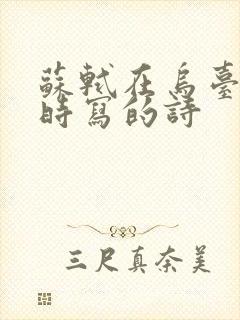 蘇軾在烏臺
時寫的詩
三尺真奈美